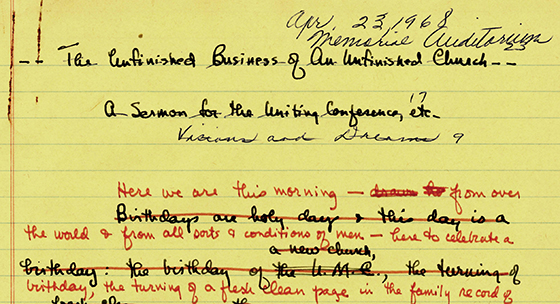 Apr. 23, 1968
Memorial Auditorium
-- The Unfinished Business of An Unfinished Church --
A Sermon for the Uniting Conference, etc.
Visions and Dreams
Here we are this morning — from over
Birthdays are holy days & this day is a
the world & from all sorts & conditions of men — here to celebrate a
a new church,
birthday: the birthday of the U.M.C., the turning of
birthday, the turning of a fresh clean page in the family record of